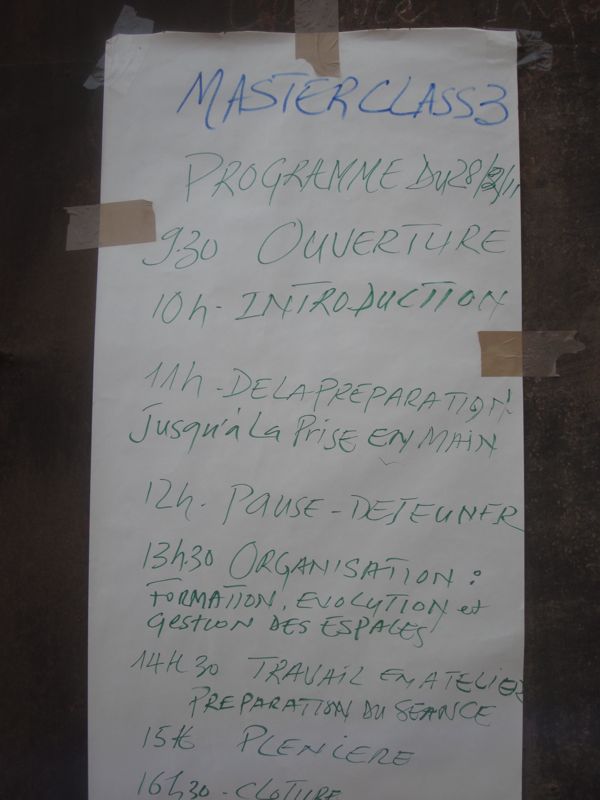 MASTERCLASS3
PROGRAMME DU 28/
930 OUVERTURE
10h - INTRODUCTION
11h - DE LA PREPARATION
Jusqu'à La Prise EN MAIN
12h. PAUSE-DEJEUNER
13h30 ORGANISATION :
FORMATION, EVOLUTION et
GESTION DES ESPACES
14H30 TRAVAIL EN ATELIER
PREPARATION DU SEANCE
15H PLENIERE
16h30 - CLOTURE